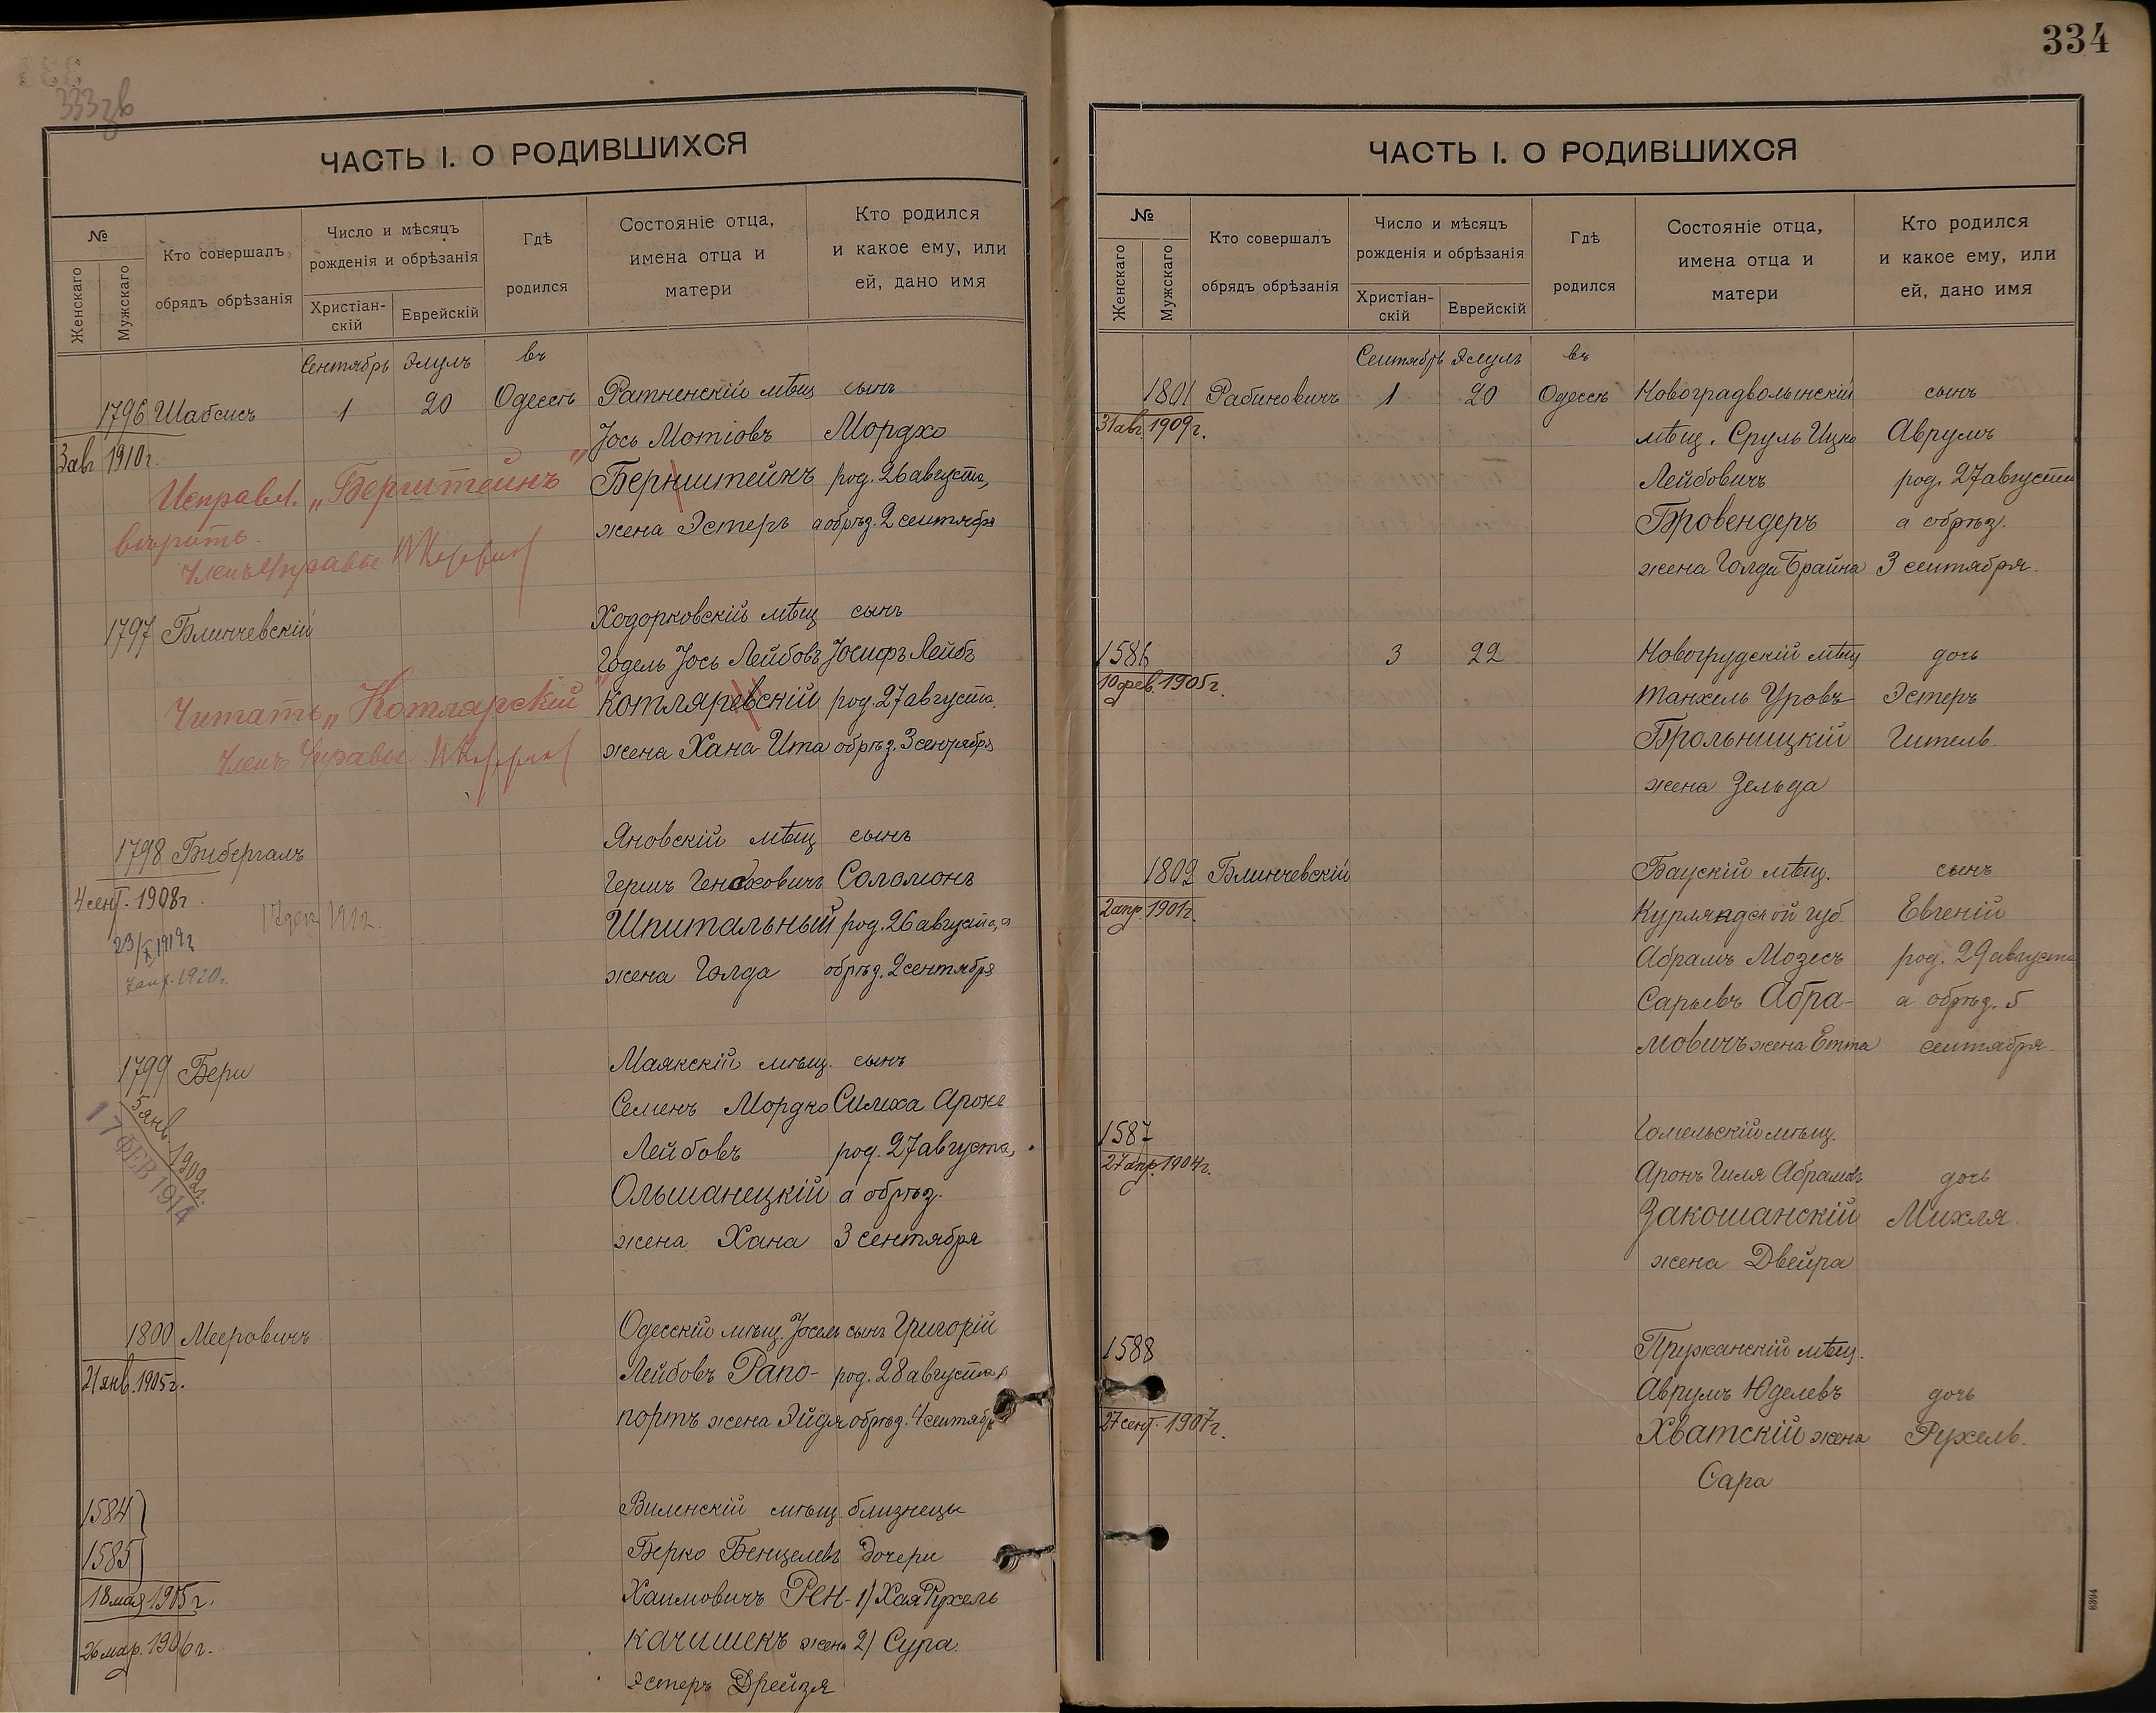 333 зв
ЧАСТЬ I. О РОДИВШИХСЯ
№
Женскаго
Мужскаго
Кто совершалъ
обрядъ обрѣзанія
Число и мѣсяцъ
рожденія и обрѣзанія
Христіан-
скій
Еврейскій
Гдѣ
родился
Состояніе отца,
имена отца и
матери
Кто родился
и какое ему, или
ей, дано имя
Сентябрь Элулъ въ
1796 Шабсисъ 1 20 Одессѣ Ратненскій мѣщ сынъ
3 авг 1910 г.
Іось Мотіовъ Мордхо
Исправл. „Берштейнъ"
Бернштейнъ род. 26 августа,
вѣрить.
жена Эстеръ а обрѣз. 2 сентября
Членъ Управы
1797 Блинчевскій Ходорковскій мѣщ сынъ
Годель Іось Лейбовъ Іосифъ Лейбъ
Читать „Котлярскій"
Котляревскій род. 27 августа,
Членъ Управы
жена Хана-Ита обрѣз. 3 сентября
1798 Бибергалъ Яновскій мѣщ сынъ
4 сент. 1908 г.
Гершъ Геноховичъ Соломонъ
23/X 1919 г
Шпитальный род. 26 августа, а
1920 г.
жена Голда обрѣз. 2 сентября
1799 Бери Маякскій мѣщ. сынъ
5 янв. 1902 г.
17 ФЕВ 1914
Семенъ Мордко Симха Аронъ
Лейбовъ род. 27 августа,
Ольшанецкій а обрѣз.
жена Хана 3 сентября
1800 Мееровичъ Одесскій мѣщ. Іосель сынъ Григорій
21 янв. 1905 г.
Лейбовъ Рапо- род. 28 августа
портъ жена Эйдя обрѣз. 4 сентября
1584 Виленскій мѣщ. близнецы
1585 Берко Бенцелевъ дочери
18 мая 1905 г.
Хаимовичъ Рен- 1) Хая Рухель
26 мар. 1906 г.
качишекъ жена 2) Сура.
Эстеръ Дрейзя
334
ЧАСТЬ I. О РОДИВШИХСЯ
№
Женскаго
Мужскаго
Кто совершалъ
обрядъ обрѣзанія
Число и мѣсяцъ
рожденія и обрѣзанія
Христіан-
скій
Еврейскій
Гдѣ
родился
Состояніе отца,
имена отца и
матери
Кто родился
и какое ему, или
ей, дано имя
Сентябрь Элулъ въ
1801 Рабиновичъ 1 20 Одессѣ Новоградволынскій сынъ
31 авг. 1909 г.
мѣщ. Сруль Ицко Аврумъ
Лейбовичъ род. 27 августа
Бровендеръ а обрѣз.
жена Голда Брайна 3 сентября.
1586 3 22 Новогрудскій мѣщ дочь
10 фев. 1905 г.
Танхель Уровъ Эстеръ
Брольницкій Гитель.
жена Зельда
1802 Блинчевскій Баускій мѣщ. сынъ
2 апр. 1901 г.
Курляндской губ. Евгеній
Абрамъ Мозесъ род. 29 августа
Сарыевъ Абра- а обрѣз. 5
мовичъ жена Етта сентября.
1587 Гомельскій мѣщ.
27 апр. 1904 г.
Аронъ Гиля Абрамовъ дочь
Закошанскій Михля.
жена Двейра
1588 Пружанскій мѣщ.
Аврумъ Юделевъ дочь
27 сент. 1907 г.
Хватскій жена Рухель.
Сара